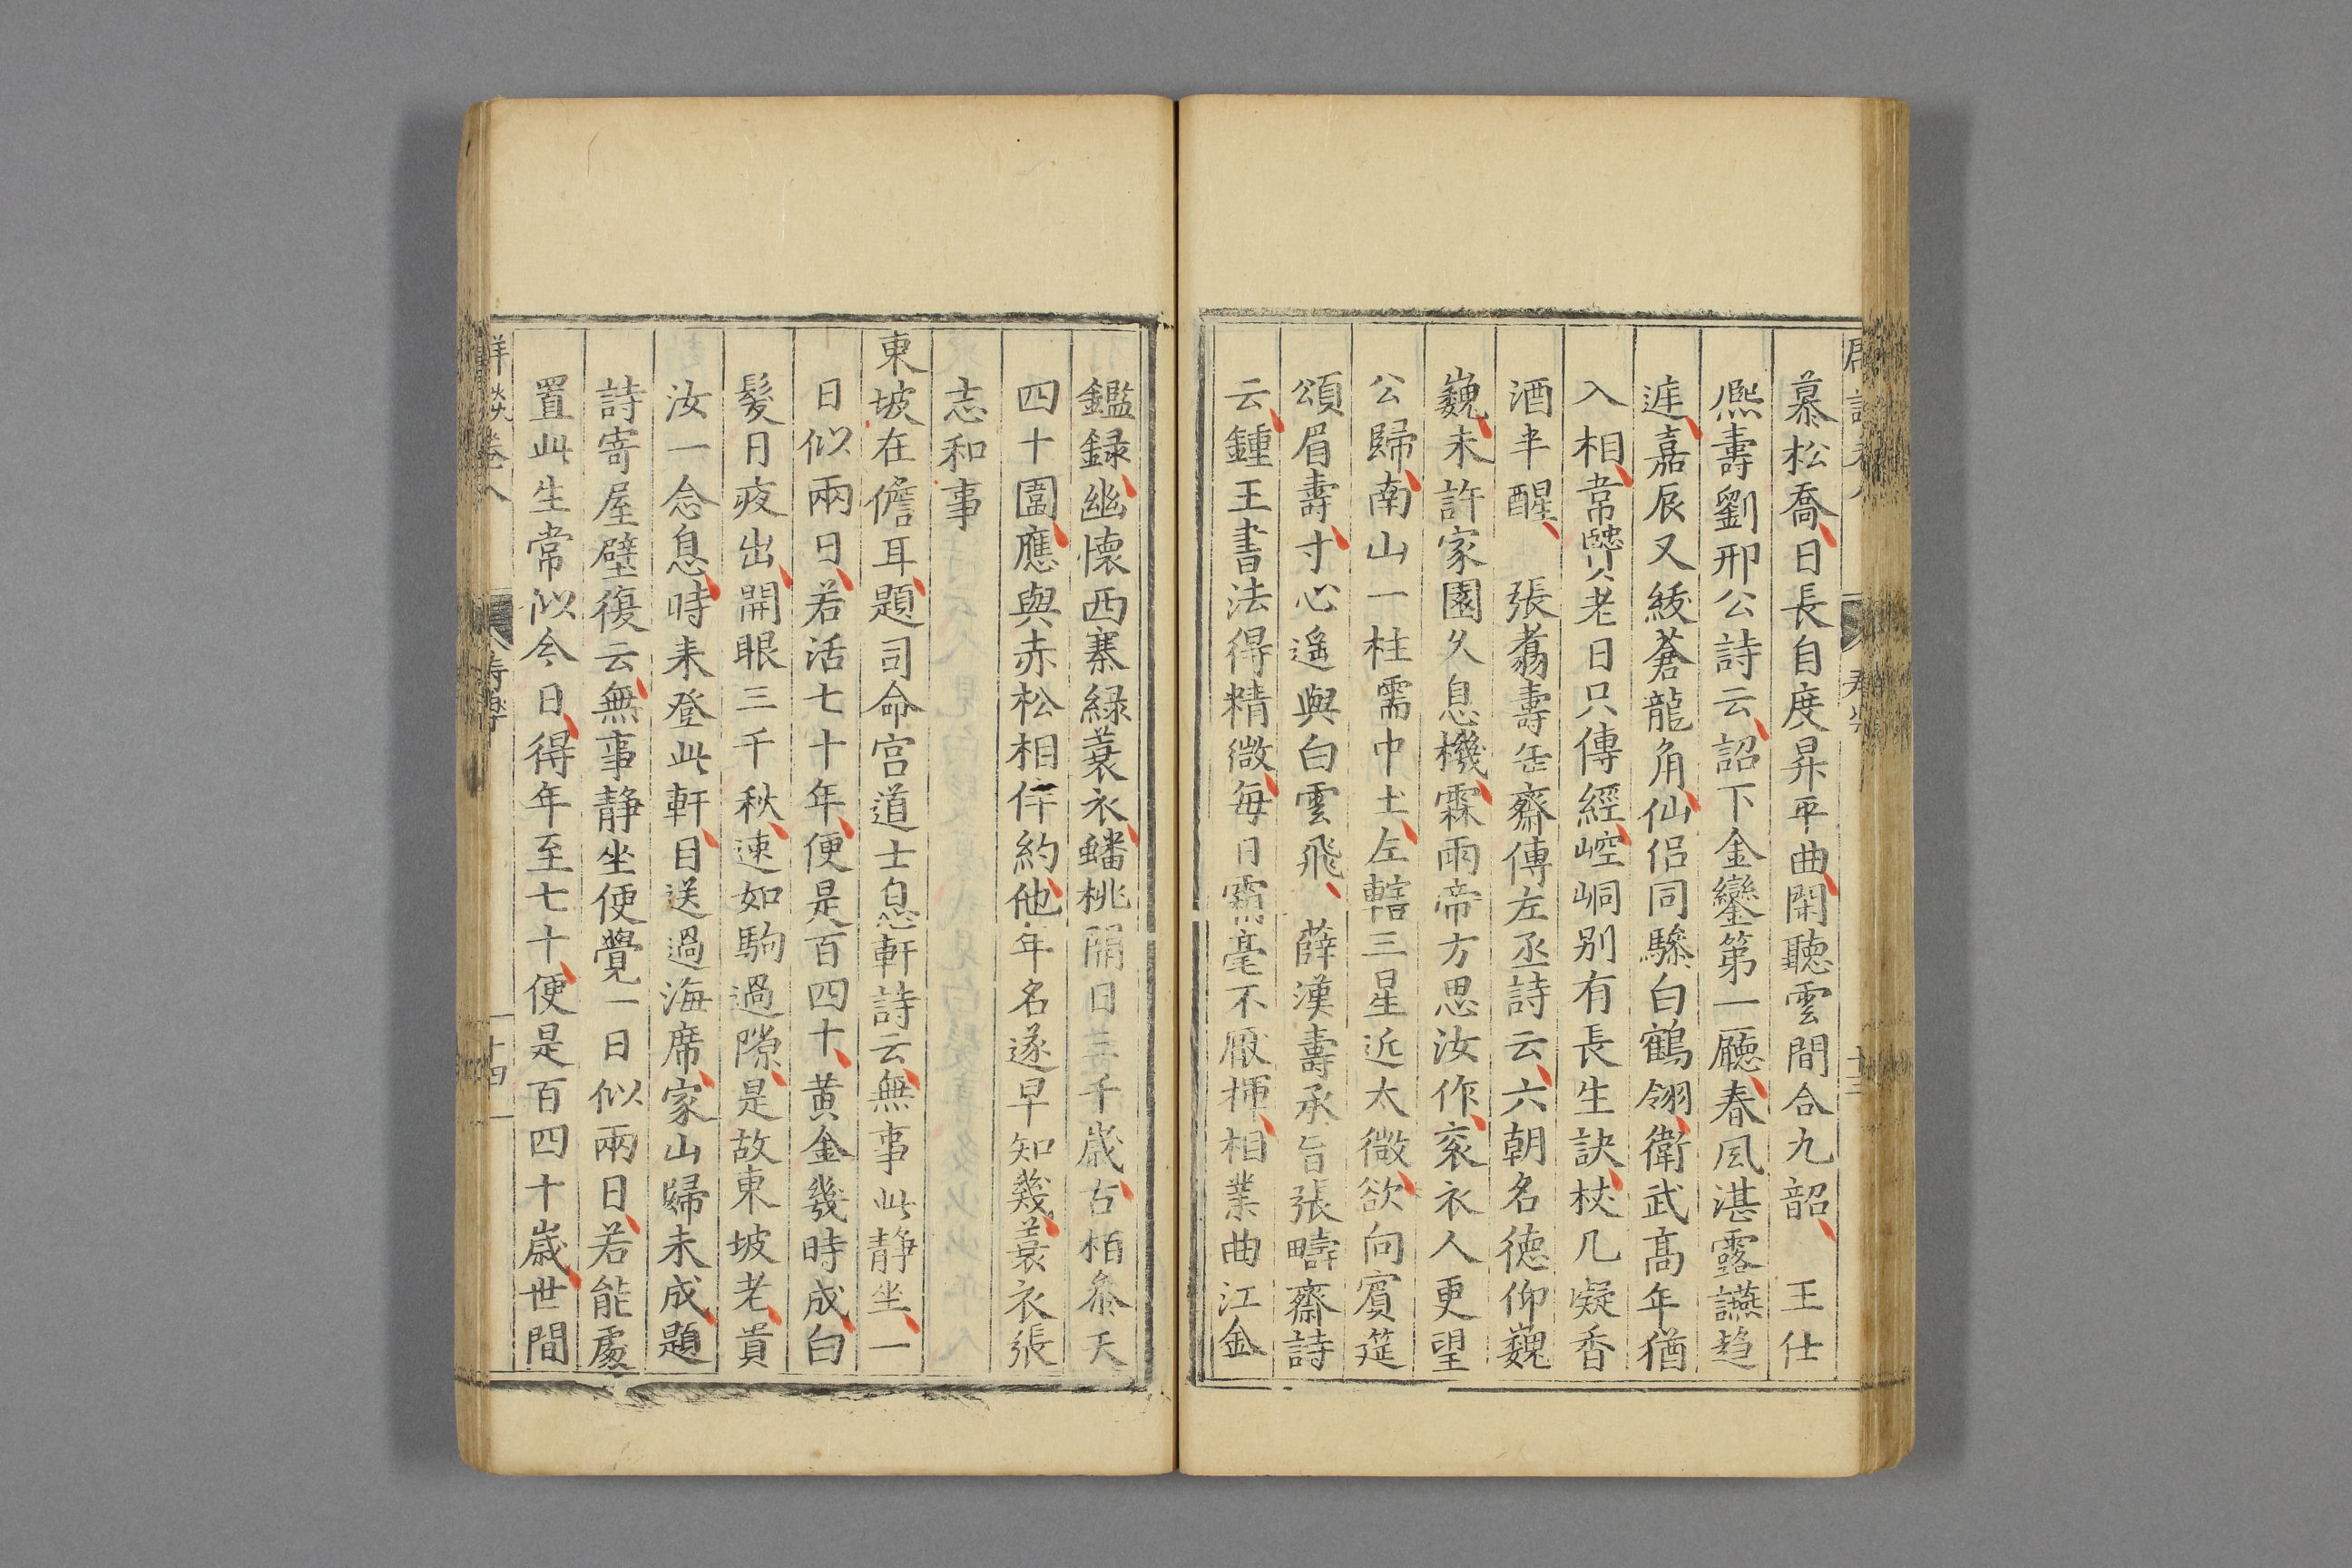 慕松喬日長自度昇平曲閑聽雲間合九韶　王仕
熈壽劉邢公詩云詔下金鑾第一廳春風湛露讌趋
嘉辰又綴蒼龍角仙侣同驂白鶴翎衛武髙年猶
入相韋賢老日只傳經崆峒别有長生訣杖几凝香
酒半醒　張翥壽岳齋傳左丞詩云六朝名徳仰巍
巍未許家園久息機霖雨帝方思汝作衮衣人更望
公歸南山一柱需中土左轄三星近太微欲向賓筵
頌眉壽寸心遙與白雲飛　薛漢壽承旨張疇齋詩
云鍾王書法得精微每日霜毫不厭揮相業曲江金
鑑録幽懐西寨緑蓑衣蟠桃開日三千歳古栢叅天
四十圍應與赤松相伴約他年名遂早知幾蓑衣張
志和事
東坡在儋耳題司命宫道士息軒詩云無事此静坐一
日似兩日若活七十年便是百四十黄金幾時成白
髪日夜出開眼三千秋速如駒過隙是故東坡老貴
汝一念息時来登此軒目送過海席家山歸未成題
詩寄屋壁復云無事静坐便覺一日似兩日若能處
置此生常似今日得年至七十便是百四十歳世間
詳談卷八
十四